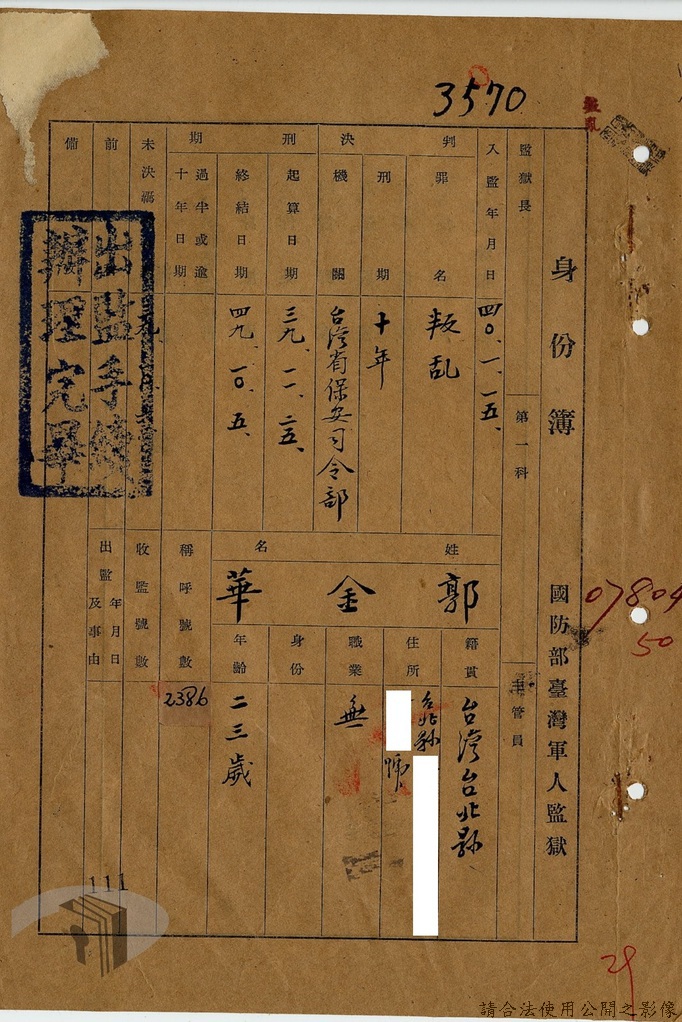 3570
叛亂
身份簿
國防部臺灣軍人監獄
監獄長
第一科
主管員
入監年月日
四〇、一、一五、
判決
罪名
叛乱
刑期
十年
機關
台湾省保安司令部
刑期
起算日期
三九、一一、二五、
終結日期
四九、一〇、五、
過半或逾十年日期
未決羈
前
備
出監手續
辦理完畢
姓名
郭金華
籍貫
台湾台北縣
住所
台北縣
號
職業
無
身份
年齡
二三歲
稱呼號數
2386
收監號數
出監年月日及事由
07804
50
111
29
請合法使用公開之影像